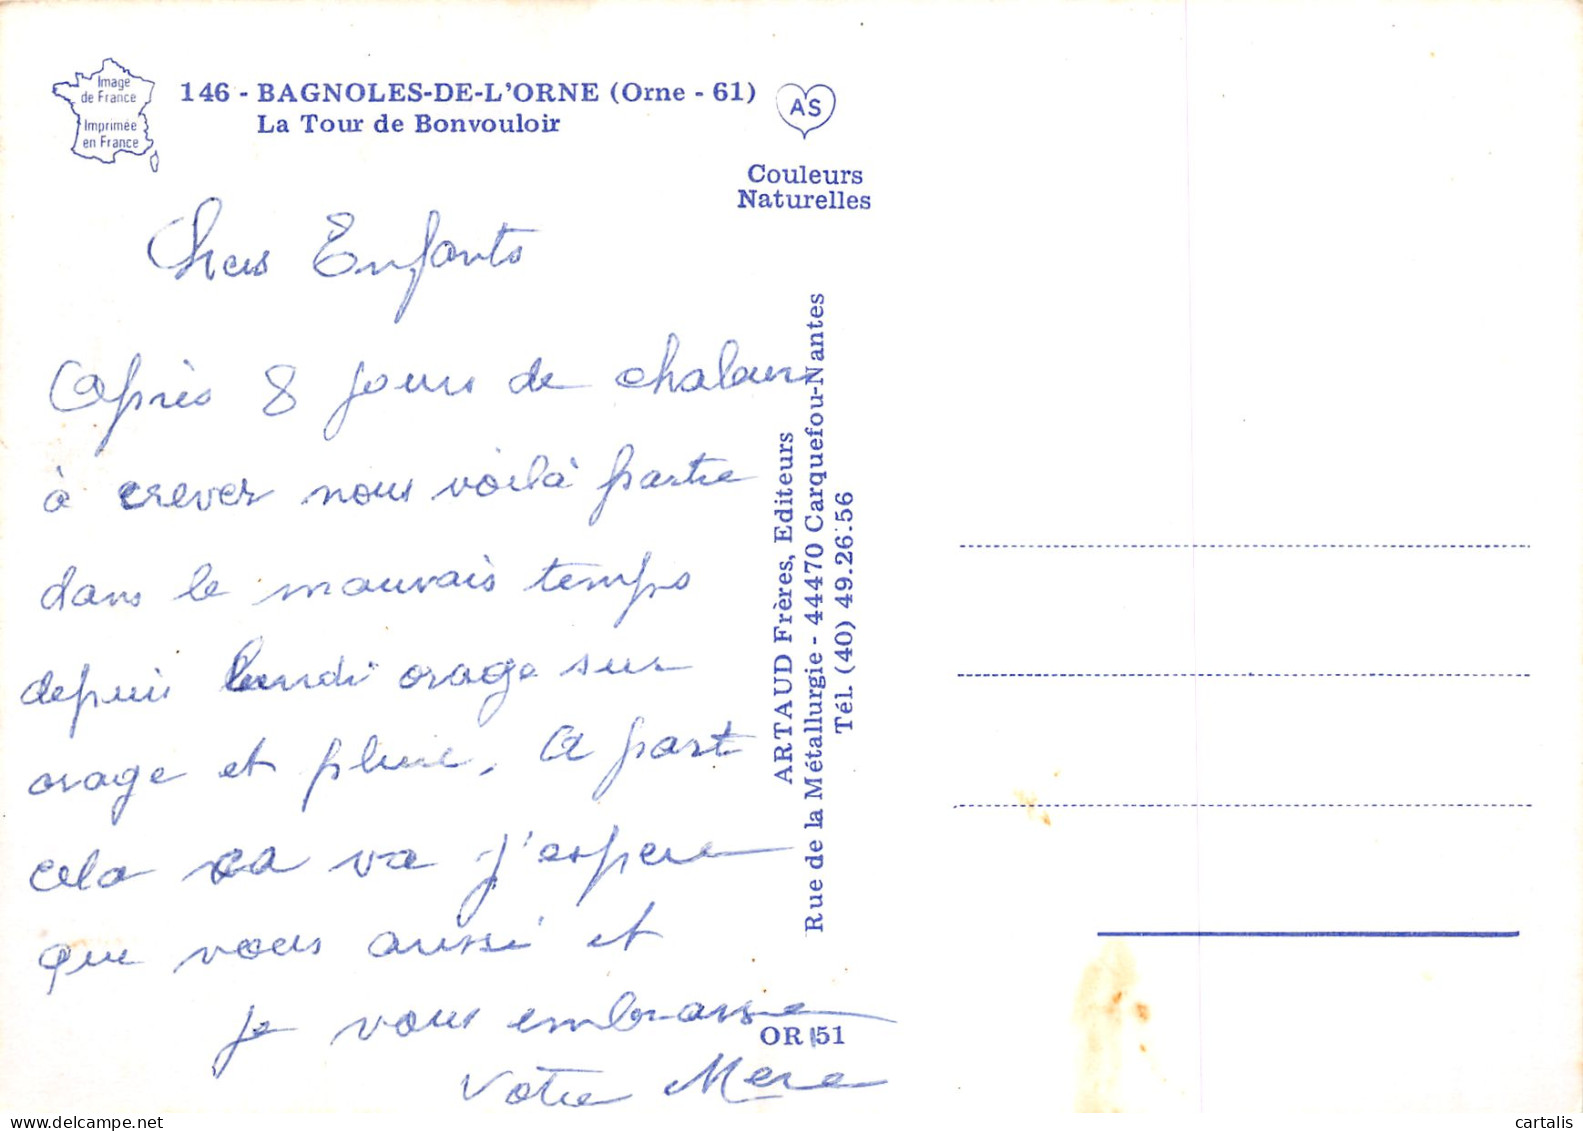 Image
de France
Imprimée
en France
146 - BAGNOLES-DE-L'ORNE (Orne - 61)
La Tour de Bonvouloir
AS
Couleurs
Naturelles
Chers Enfants
Après 8 jours de chaleur
à crever nous voilà partie
dans le mauvais temps
depuis lundi orage sur
orage et pluie. A part
cela ca va j'espere
que vous aussi et
je vous embrasse
Votre Mere
ARTAUD Frères, Editeurs
Rue de la Métallurgie - 44470 Carquefou-Nantes
Tél. (40) 49.26.56
OR 151
delcampe.net
cartalis